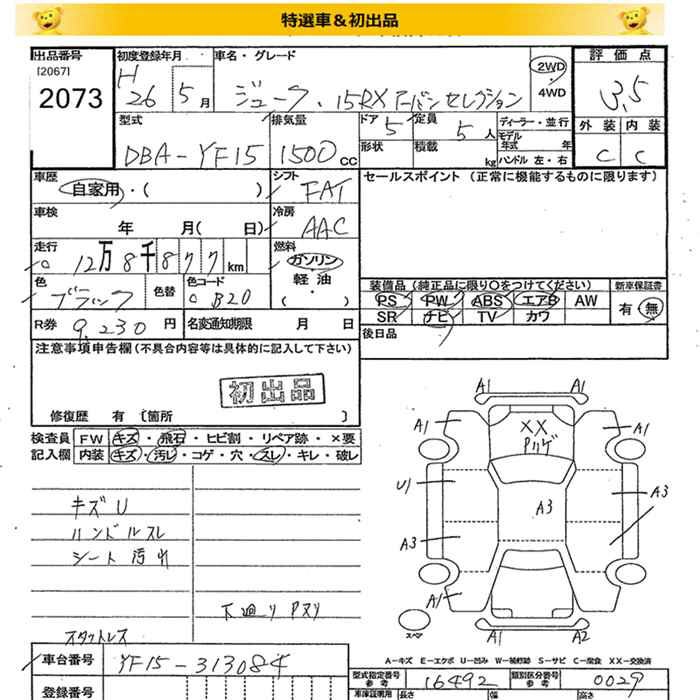 特選車＆初出品
出品番号 初度登録年月 車名・グレード 2WD 評価点
[2067]
2073 H 26 5月 ジューク・15RX アーバンセレクション 4WD 3.5
型式 排気量 ドア 5 定員 5人 ディーラー・並行 外装 内装
モデル年式 年
DBA-YF15 1500cc 形状 積載 kg ハンドル 左・右 C C
車歴 シフト セールスポイント （正常に機能するものに限ります）
自家用・（ ） FAT
車検 冷房
年 月（ 日） AAC
走行 燃料
12万8千877km ガソリン
軽油
色 色替 色コード （・）
ブラック B20
装備品（純正品に限り○をつけてください） 新車保証書
PS PW ABS エアB AW 有・無
SR ナビ TV カワ
R券 9,230円 名変通知期限 月 日 後日品
注意事項申告欄（不具合内容等は具体的に記入して下さい）
初出品
修復歴 有 〔箇所 〕
検査員 FW キズ・飛石・ヒビ割・リペア跡・×要
記入欄 内装 キズ・汚レ・コゲ・穴・スレ・キレ・破レ
A1 A1
A1 XX A1
Pハゲ
U1 A3 A3
A3
A1
A1 A2
キズ U
ハンドルスレ
シート 汚れ
下廻り Pヌリ
スペア
スタットレス
A-キズ E-エクボ U-凹み W-補修跡 S-サビ C-腐食 XX-交換済
車台番号 YF15-313084
登録番号
型式指定番号 参考 16492 類別区分番号 参考 0029
車庫証明用 参考 長さ 幅 高さ